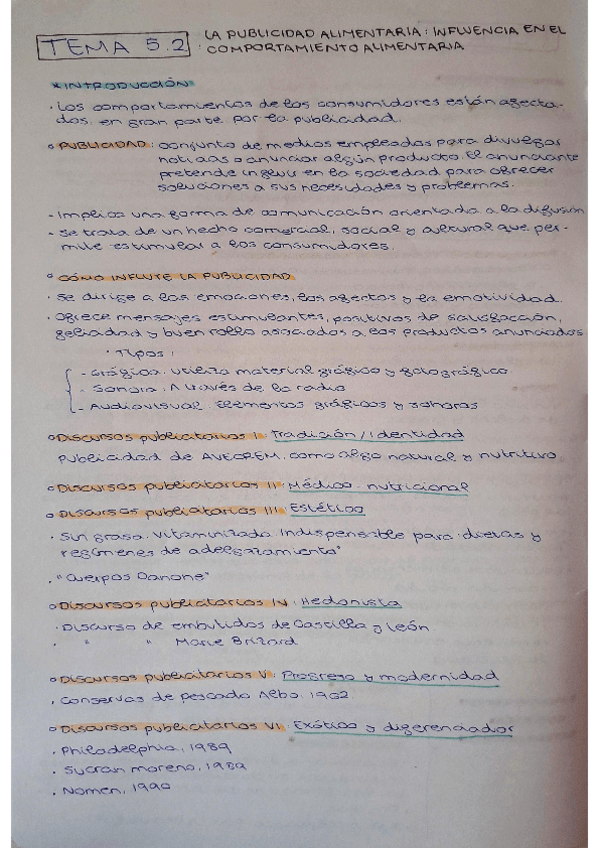 TEMA 5.2
LA PUBLICIDAD ALIMENTARIA: INFLUENCIA EN EL
COMPORTAMIENTO ALIMENTARIA
*INTRODUCCIÓN
· Los comportamientos de los consumidores están afecta-
dos, en gran parte por la publicidad.
° PUBLICIDAD: conjunto de medios empleados para divulgar
noticias o anunciar algún producto. El anunciante
pretende influir en la sociedad para ofrecer
soluciones a sus necesidades y problemas.
- Implica una forma de comunicación orientada a la difusión
- Se trata de un hecho comercial, social y cultural que per-
mite estimular a los consumidores.
° CÓMO INFLUYE LA PUBLICIDAD
· Se dirige a las emociones, los afectos y la emotividad.
· Ofrece mensajes estimulantes, positivos de satisfacción,
felicidad y buen rollo asociados a los productos anunciados
· Tipos:
- Gráfica: utiliza material gráfico y fotográfico
- Sonora: A través de la radio
- Audiovisual: Elementos gráficos y sonoros
° Discursos publicitarios I: Tradición/Identidad
Publicidad de AVECREM, como algo natural y nutritivo
° Discursos publicitarios II: Médico-nutricional
° Discursos publicitarios III: Estético
· Sin grasa. Vitaminizada. Indispensable para dietas y
regímenes de adelgazamiento"
· "Cuerpos Danone"
° Discursos publicitarios IV: Hedonista
· Discurso de embutidos de Castilla y León
· " " Marie Brizard
° Discursos publicitarios V: Progreso y modernidad
· Conservas de pescado Albo, 1962
° Discursos publicitarios VI: Exótico y diferenciador
· Philadelphia, 1989
· Sucran moreno, 1989
· Nomen, 1990